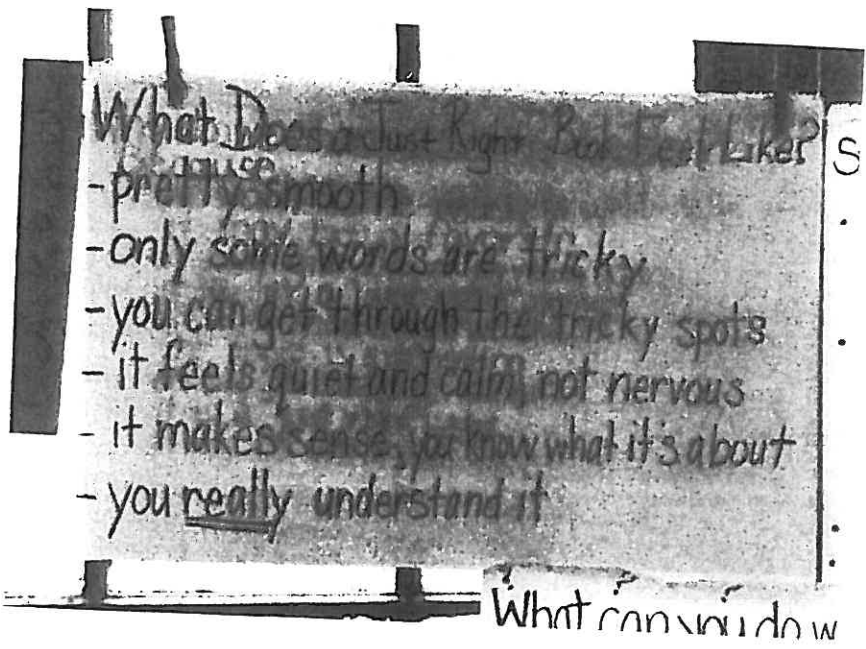 What Does a Just Right Book Feel Like?
- pretty smooth
- only some words are tricky
- you can get through the tricky spots
- it feels quiet and calm, not nervous
- it makes sense, you know what it's about
- you really understand it
S
What can you do w